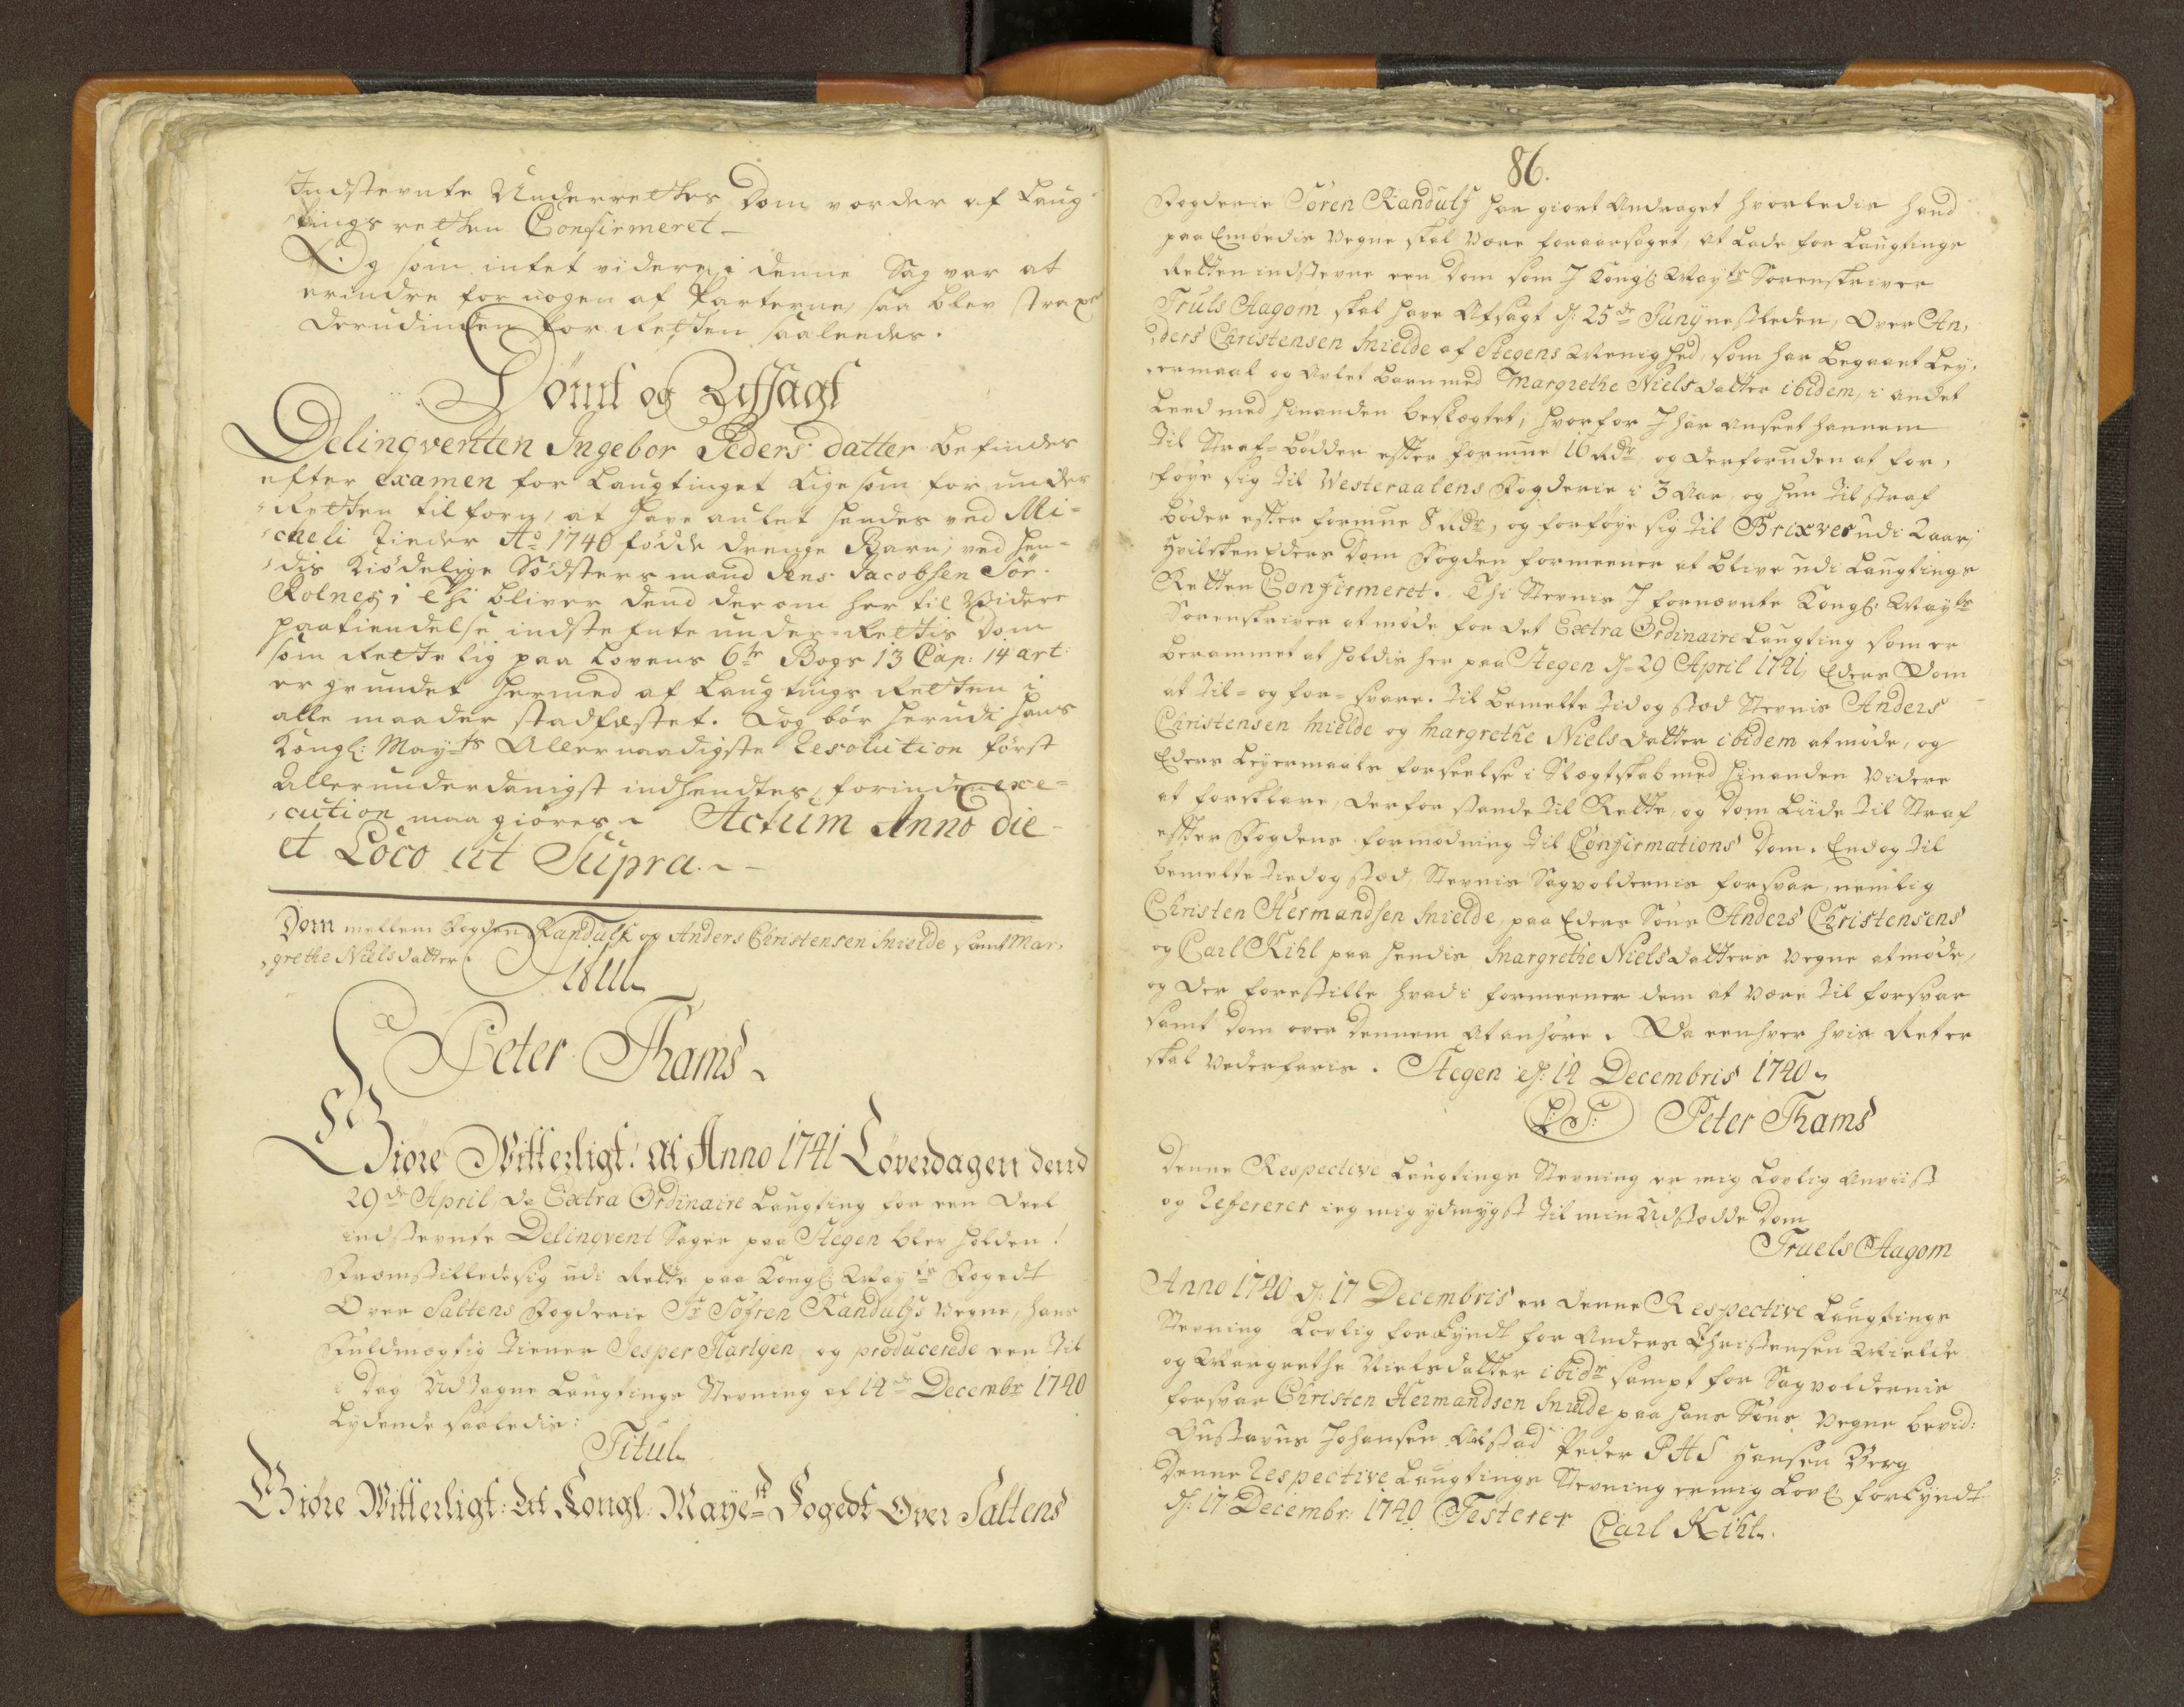 Indstevnte Underrettes Dom vorder af Laug
tings retten Confirmeret
Og som intet videre i denne Sag var at
erindre for nogen af Parterne, saa blev strax
derudinden for Retten saaleedes.
Dömt og Afsagt
Delinqventten Ingebor Peders datter befindes
efter examen for Laugtinget ligesom for under
Retten tilforn, at have aulet hendes ved Mi-
cheli Tieder Ao 1740 födde drenge Barn, ved hen-
dis Kiödelige Södsters mand Jens Jacobsen Sör
Rolnes; Thi bliver dend derom her til Videre
paakiendelse indstefnte under-Rettis Dom
som Rettelig paa Lovens 6te Bogs 13 Cap: 14 art:
er grundet hermed af Laugtings Retten i
alle maader stadfæstet. Dog bör herudi hans
Kongl: Mayts Allernaadigste Resolution först
Allerunderdanigst indhendtes, forinden exe-
cution maa giöres. Actum Anno die
et Loco ut Supra.
Dom mellem Fogden Randulf og Anders Christensen Mielde samt Mar-
grethe Nielsdatter.
Titul
Peter Thams
Giöre Witterligt! At Anno 1741 Löverdagen dend
29de April, da Extra Ordinaire Laugting for een Deel
indstevnte Delinqvent Sager paa Stegen blev holden!
Fremstillede sig udi Rette paa Kongl: Mayts Fogedt
Over Saltens Fogderie Sr Söfren Randulfs Vegne, hans
Fuldmegtig tiener Jesper Hartgen og producerede een til
i Dag Udtagne Laugtings Stevning af 14de Decembr 1740
Lydende saaledis:
Titul
Giöre Witterligt: At Kongl: Mayestt Fogedt Over Saltens
86.
Fogderie Sören Randulf har giort Andraget hvorledis hand
paa Embedis Vegne skal Være foraarsaget, at Lade for Laugtings
Retten indstevne een Dom som I Kongl: Mayts Sorenskriver
Truls Aagom skal have Afsagt d: 25de Juny nestleden, Over An-
ders Christensen Mielde af Stegens Menighed, som har begaaet Ley-
ermaal og Avlet barn med Margrethe Nielsdatter ibidem, i andet
Leed med hinanden beslegtet, hvorfor I har anseet hannem
til Straf-bödder efter formue 16 Rdr, og derforuden at for-
föye sig til Westeraalens Fogderie i 3 Aar, og hun til straf
böder efter formue 8 Rdr, og forföye sig til Brixver udi 2 aar,
Hvilken Eders Dom Fogden formeener at blive udi Laugtings
Retten Confirmeret. Thi Stevnis I fornævnte Kongl: Mayts
Sorenskriver at möde for det Extra Ordinaire Laugting som er
berammet at holdis her paa Stegen d: 29 April 1741, Eders Dom
at til- og for-svare. Til bemelte tid og stæd Stevnis Anders
Christensen Mielde og Margrethe Nielsdatter ibidem at möde, og
Eders Leyermaals forseelse i Slegtskab med hinanden Videre
at forklare, derfor stande til Rette, og Dom Liide til Straf
efter Fogdens formodning til Confirmations Dom. End og til
bemelte tid og stæd, Stevnis Sagvoldernis forsvar, nemlig
Christen Hermandsen Mielde, paa Eders Söns Anders Christensens
og Carl Kihl paa hendis Margrethe Nielsdatters Vegne at möde,
og der forestille hvad i formeener dem at Være til forsvar
samt Dom over dennem at anhöre. Da eenhver hvis Ret er
skal Vederfaris. Stegen d: 14 Decembris 1740
L: S: Peter Thams
Denne Respective Laugtings Stevning er mig Lovlig anviist
og Refererer ieg mig ydmygst til min Udstædde Dom
Truels Aagom
Anno 1740 d: 17 Decembris er denne Respective Laugtings
Stevning Lovlig forkyndt for Anders Christensen Mielde
og Margrethe Nielsdatter ibidm sampt for Sagvoldernis
forsvar Christen Hermandsen Mielde paa hans Söns Vegne bevid:
Gustavus Johansen Alstad Peder PHS Hansen Berg
Denne Respective Laugtings Stevning er mig Lovl: forkyndt
d: 17 Decembr: 1740 Testerer Carl Kihl.